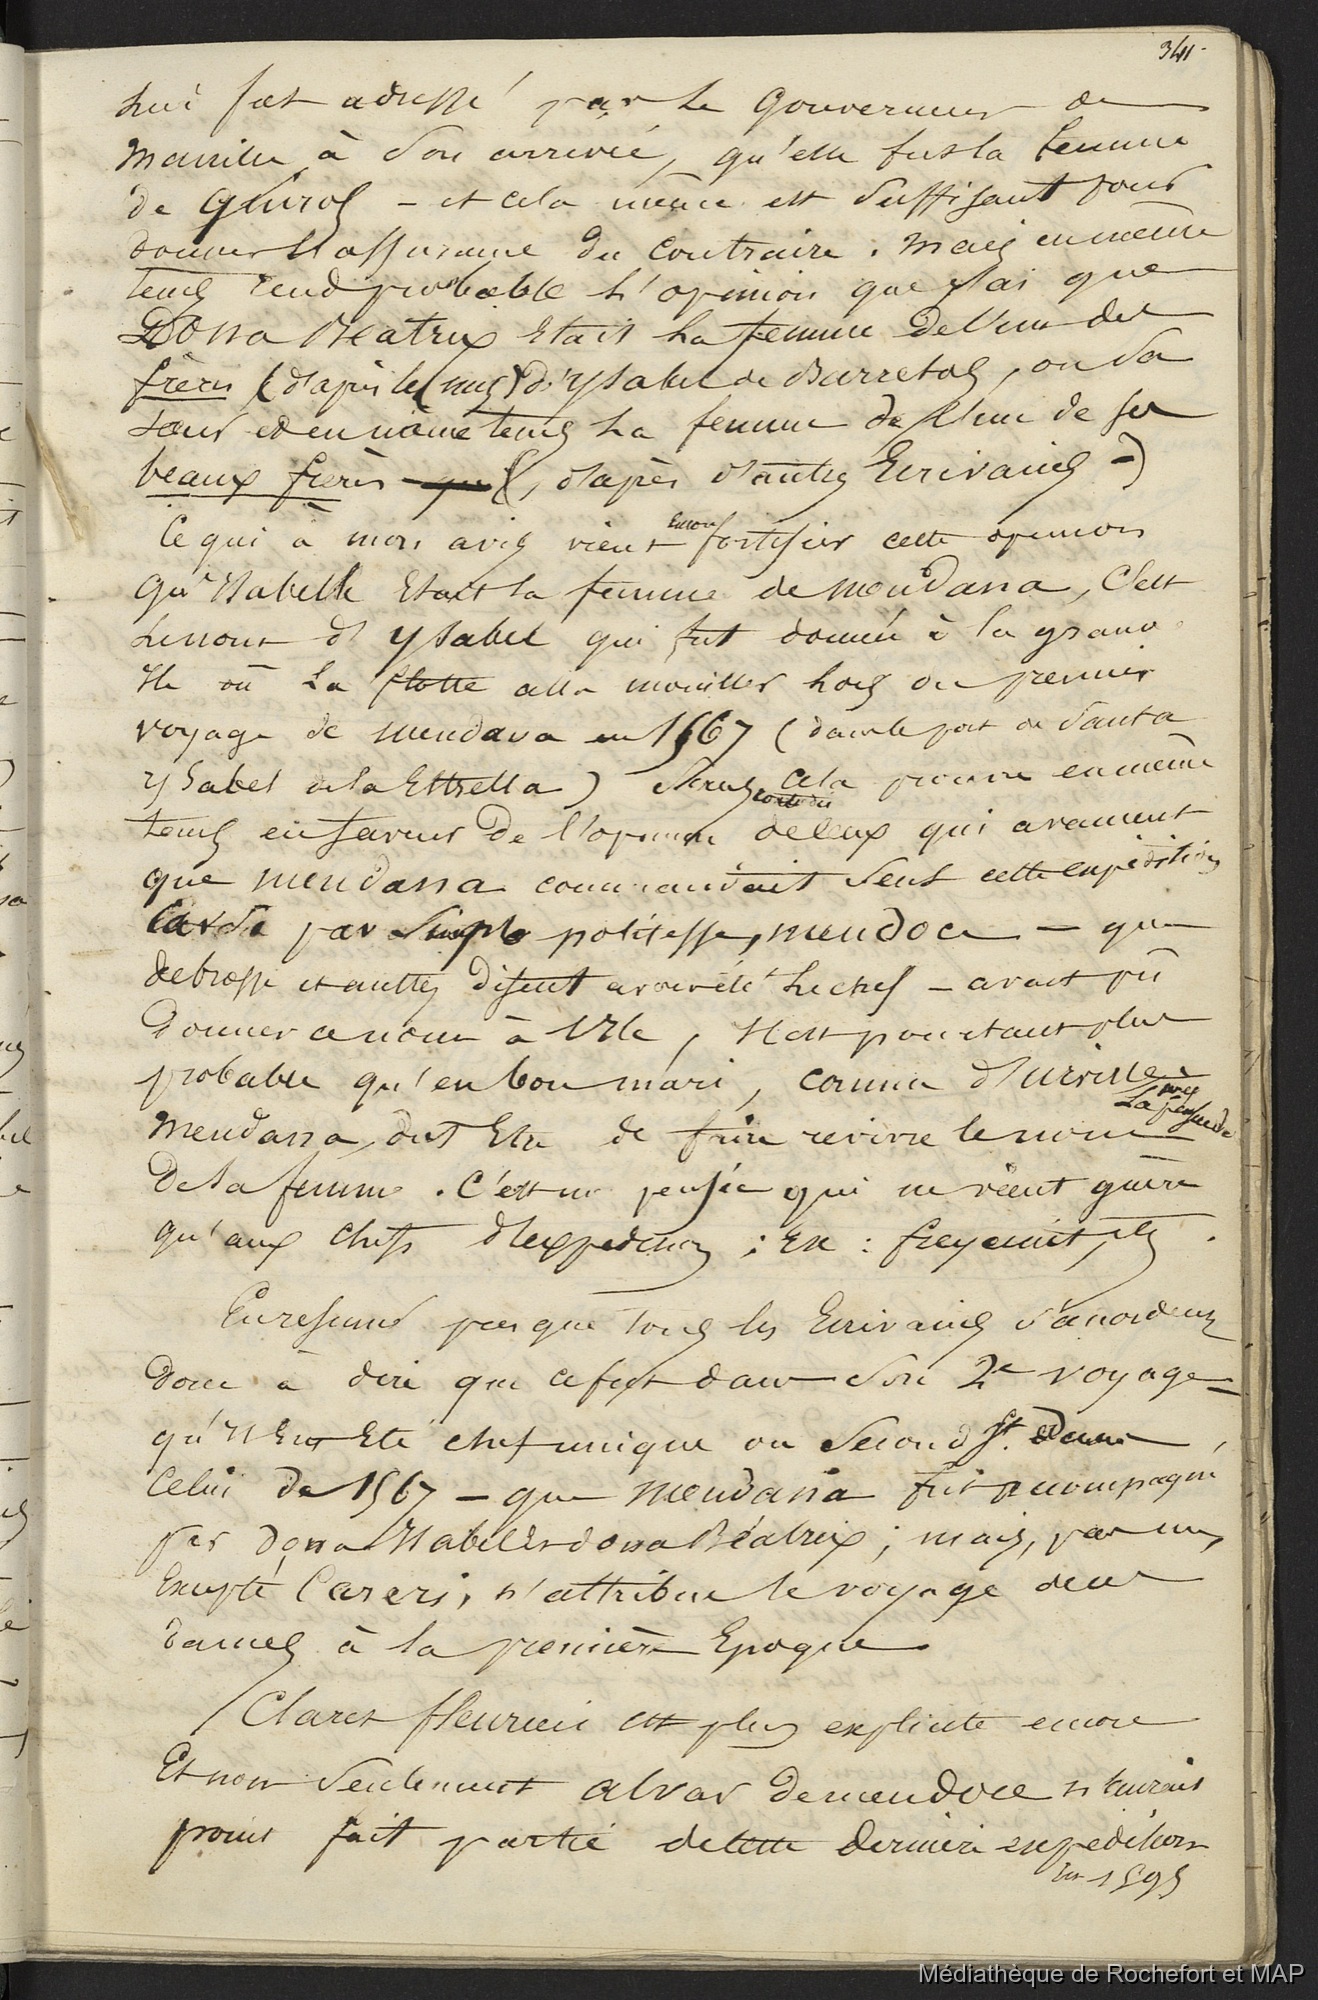 341
lui fut adressé par le Gouverneur de
Manille à son arrivée, qu'elle fut la femme
de Quiros - et cela même est suffisant pour
donner l'assurance du contraire. Mais en même
tems rend probable l'opinion que j'ai que
Dona Béatrix Etait la femme de l'un des
frères (d'après les uns) d'Ysabel de Barretos, ou sa
soeur et en même tems la femme de l'un de ses
beaux frères (, d'après d'autres Ecrivains -)
Ce qui à mon avis vient encore fortifier cette opinion
qu'Isabelle Etait la femme de Mendana, C'est
le nom d'Ysabel qui fut donné à la grande
Ile où la flotte alla mouiller lors du premier
voyage de Mendana en 1567 (dans le port de Santa
Ysabel de la Estrella) cela prouve en même
tems en faveur de l'opinion de ceux qui avancent
que Mendana commandait seul cette expédition
car si par simple politesse, Mendoce - que
debrosse et autres disent avoir été le chef - avait pû
donner ce nom à l'Ile, il est pourtant plus
probable qu'en bon mari, comme d'Urville,
la pensée de
Mendana dut Etre de faire revivre le nom
de sa femme. C'est une pensée qui ne vient guère
qu'aux chefs d'expédition ; Ex : freycinet, etc.
En résumé presque tous les Ecrivains s'accordent
donc à dire que ce fut dans son 2e voyage -
qu'il Eut Eté chef unique ou second
celui de 1567 - que Mendana fut accompagné
par dona Isabel et dona Béatrix ; mais, pas un,
Excepté Careri, n'attribue le voyage des
dames à la première Epoque.
Claret fleurieu est plus explicite encore
Et non seulement alvar de mendoce n'aurait
point fait partie de cette dernière expédition
en 1595
Médiathèque de Rochefort et MAP